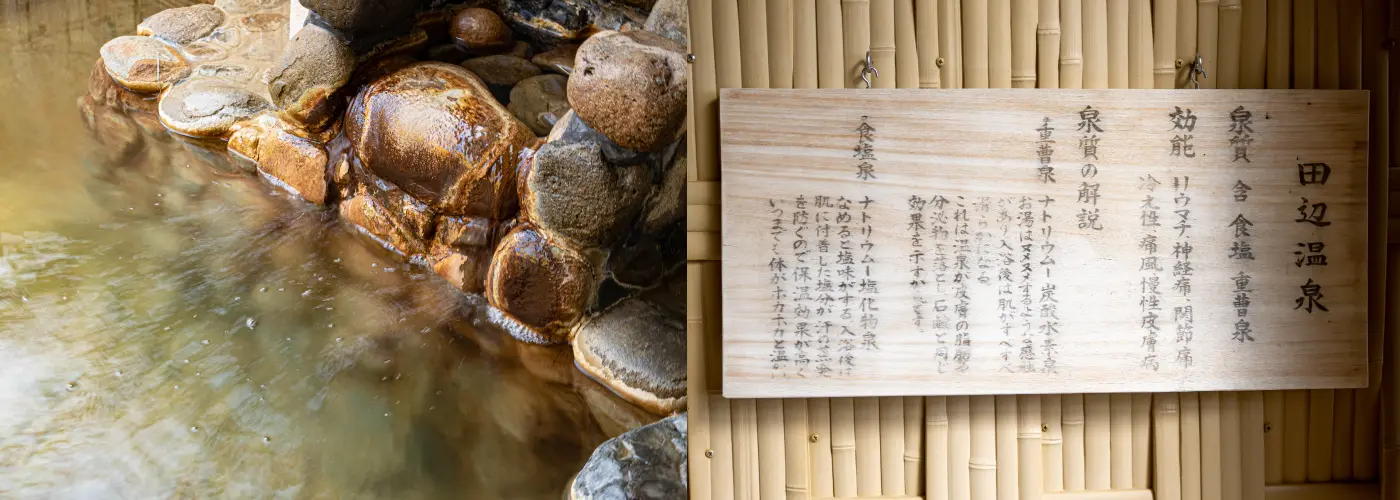 田辺温泉
泉質 含 食塩 重曹泉
効能 リウマチ、神経痛、関節痛
冷え性、痛風、慢性皮膚病
泉質の解説
重曹泉 ナトリウムー炭酸水素泉
お湯はヌメヌメするような感触
があり入浴後は肌がすべすべ
滑らかになる
これは温泉が皮膚の脂肪や
分泌物を落とし石鹸と同じ
効果を干すか です。
食塩泉 ナトリウムー塩化物泉
なめると塩味がする入浴後は
肌に付着した塩分が汗の蒸発
を防ぐので保温効果が高く
いつまでも体がポカポカと温かい